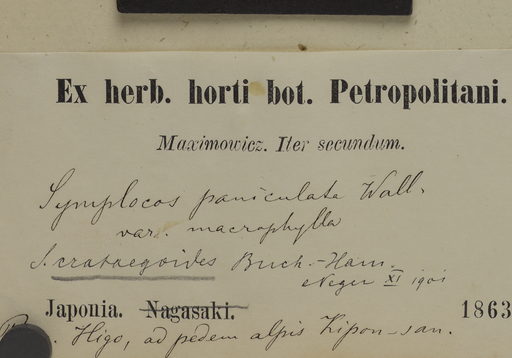 Ex herb. horti bot. Petropolitani.
Maximowicz. Iter secundum.
Symplocos paniculata Wall.
var. macrophylla
S. crataegoides Buch.-Ham.
Neger XI 1901
Japonia. Nagasaki. 1863
Higo, ad pedem alpis Kipon-san.